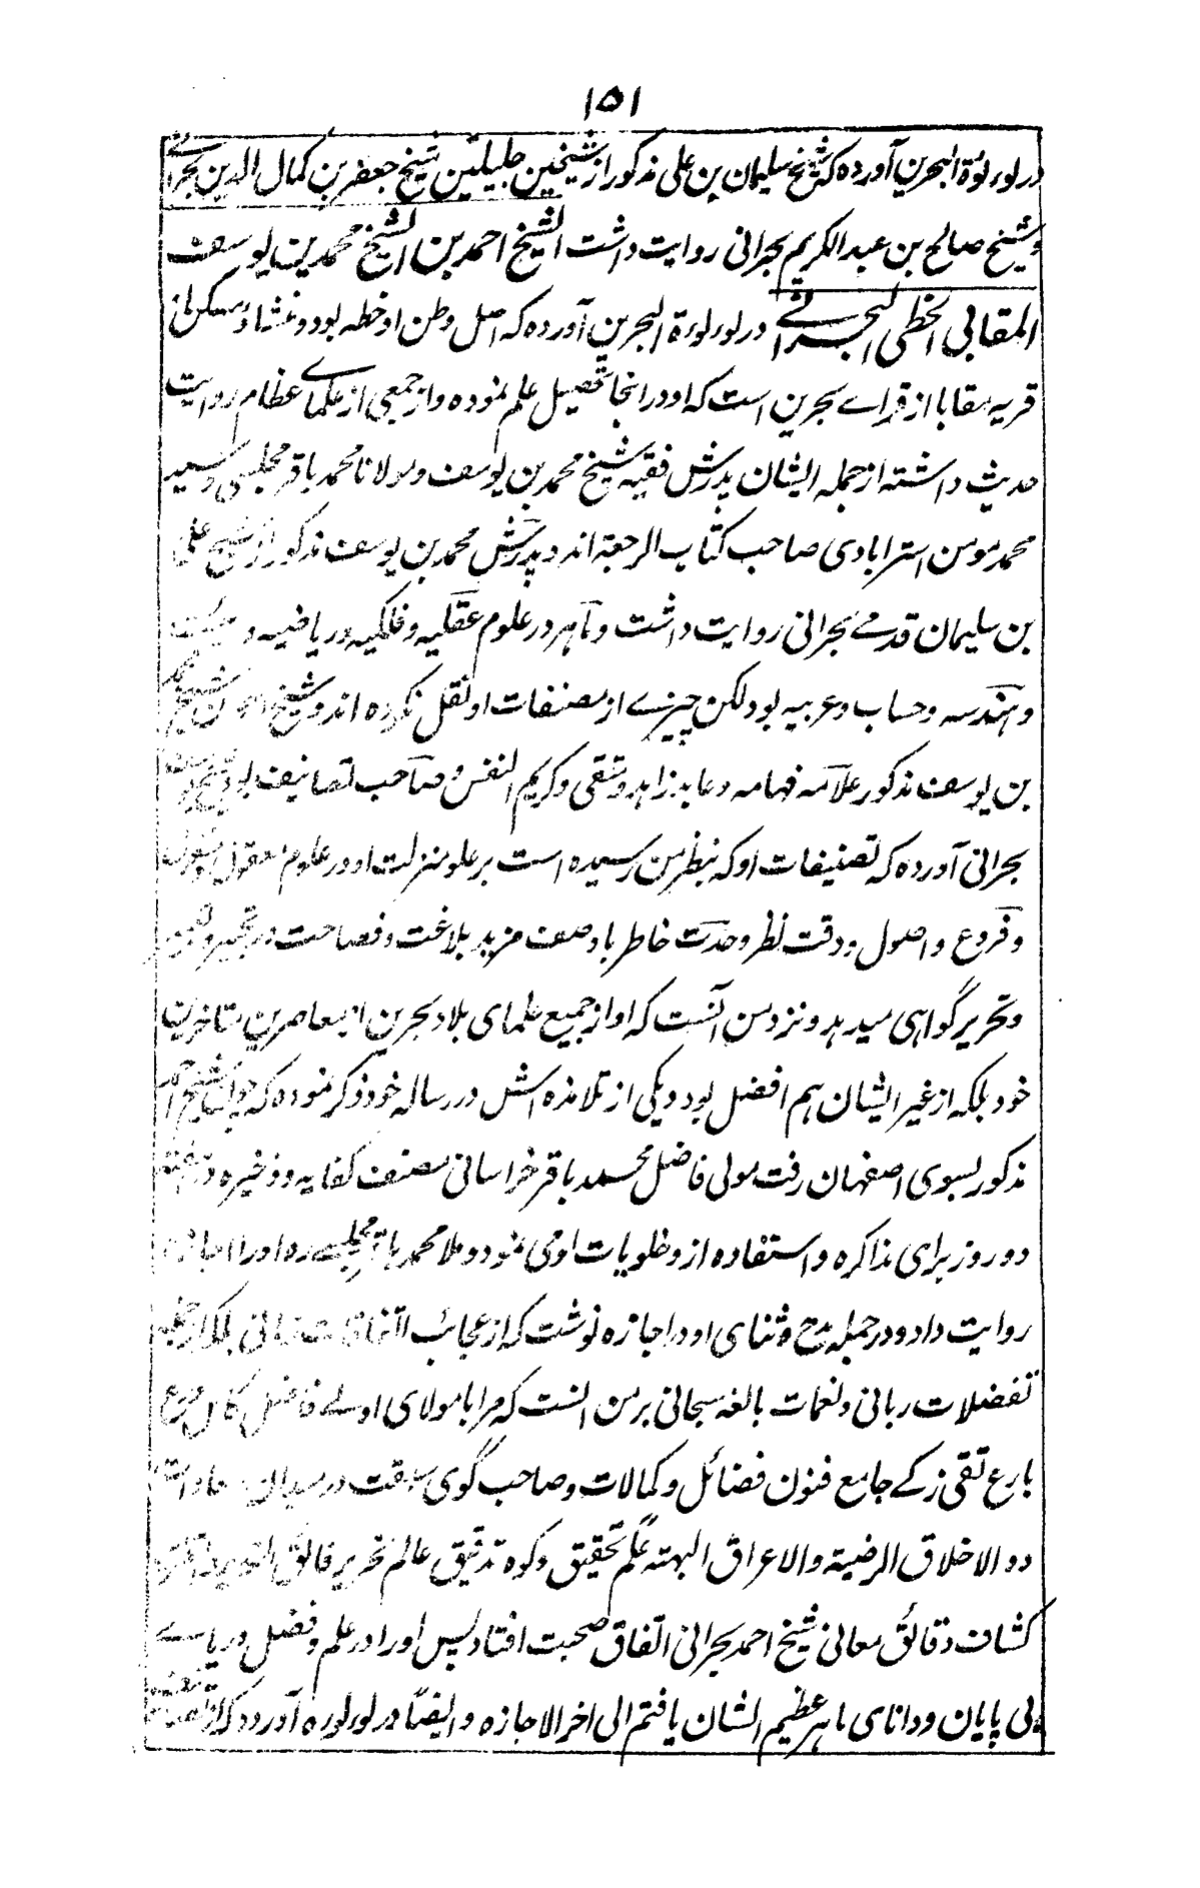 ١٥١
در لوءلوءة البحرین آورده که شیخ سلیمان بن علی مذکور از شیخین جلیلین شیخ جعفر بن کمال الدین بحرانے
و شیخ صالح بن عبد الکریم بحرانی روایت داشت الشیخ احمد بن الشیخ محمد بن یوسف
المقابی الخطی البحرانے در لوءلوءة البحرین آورده که اصل وطن او خطه بود و منشاء و مسکن او
قریه مقابا از قراے بحرین است که او در انجا تحصیل علم نموده و از جمعی از علماے عظام روایت
حدیث داشته از جمله ایشان پدرش فقیه شیخ محمد بن یوسف و مولانا محمد باقر مجلسی و سید
محمد مومن استرابادی صاحب کتاب الرجعة اند و پدرش محمد بن یوسف مذکور از شیخ علی
بن سلیمان قدمے بحرانی روایت داشت و ماهر در علوم عقلیه و فلکیه و ریاضیه و
و هندسه و حساب و عربیه بود لکن چیزے از مصنفات او نقل نکرده اند و شیخ احمد بن شیخ محمد
بن یوسف مذکور علامه فهامه و عابد زاهد و متقی و کریم النفس و صاحب تصانیف بود شیخ
بحرانی آورده که تصنیفات او که بنظر من رسیده است بر علو منزلت او در علوم معقول و منقول
و فروع و اصول و دقت نظر و حدت خاطر با وصف مزید بلاغت و فصاحت در تعبیر
و تحریر گواهی میدهد و نزد من آنست که او از جمیع علمای بلاد بحرین از معاصرین و متاخرین
خود بلکه از غیر ایشان هم افضل بود و یکی از تلامذه اش در رساله خود ذکر نموده که چون شیخ احمد
مذکور بسوی اصفهان رفت مولی فاضل محمد باقر خراسانی مصنف کفایه و ذخیره در هفته
دو روز برای مذاکره و استفاده از و خلویات او می نمود و ملا محمد باقر مجلسے ره او را اجازه
روایت داد و در جمله مدح و ثنای او در اجازه نوشت که از عجائب اتفاقات زمانی بلکه از جمله
تفضلات ربانی و نعمات بالغه سبحانی بر من انست که مرا با مولای اولے فاضل کامل ورع
بارع تقی زکے جامع فنون فضائل و کمالات و صاحب گوی سبقت در میدان سعادات
ذو الاخلاق الرضیة والاعراق البهیة علم تحقیق و کوه تدقیق عالم نحریر فائق التحریر والتقریر
کشاف دقائق معانی شیخ احمد بحرانی اتفاق صحبت افتاد پس او را در علم و فضل دریاے
بی پایان و دانای ماهر عظیم الشان یافتم الی اخر الاجازه و ایضا در لوءلوءه آورده که از